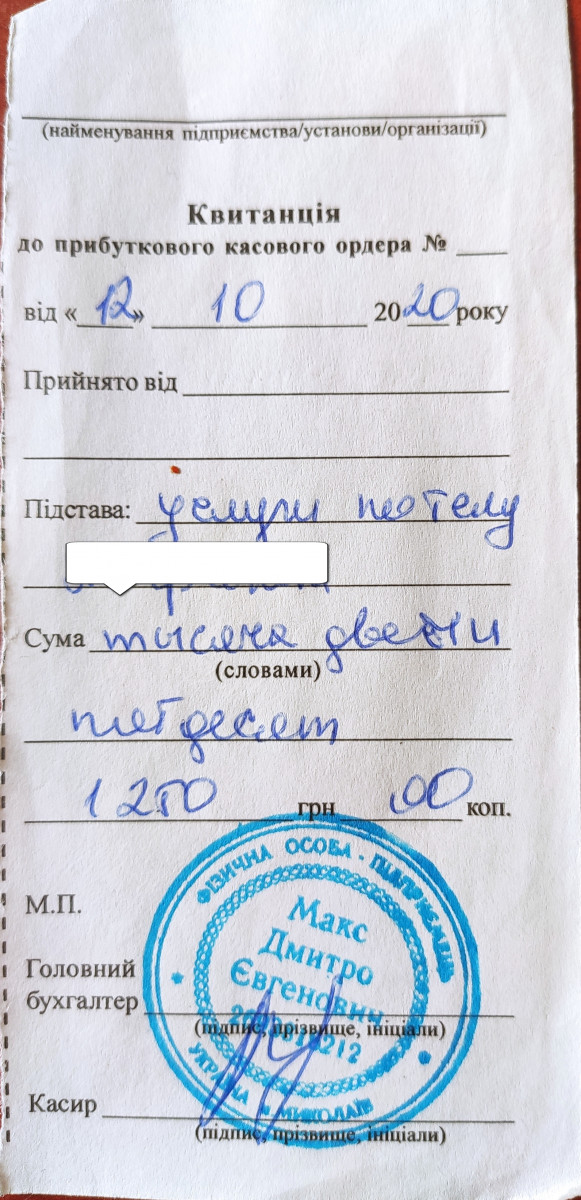 (найменування підприємства/установи/організації)
Квитанція
до прибуткового касового ордера № ___
від «12» 10 2020 року
Прийнято від
Підстава: услуги
Сума тысяча двести
(словами)
1250 грн 00 коп.
М.П.
Головний
бухгалтер
(підпис, прізвище, ініціали)
Касир
(підпис, прізвище, ініціали)
ФІЗИЧНА ОСОБА - ПІДПРИЄМЕЦЬ
Макс
Дмитро
Євгенович
УКРАЇНА м. МИКОЛАЇВ